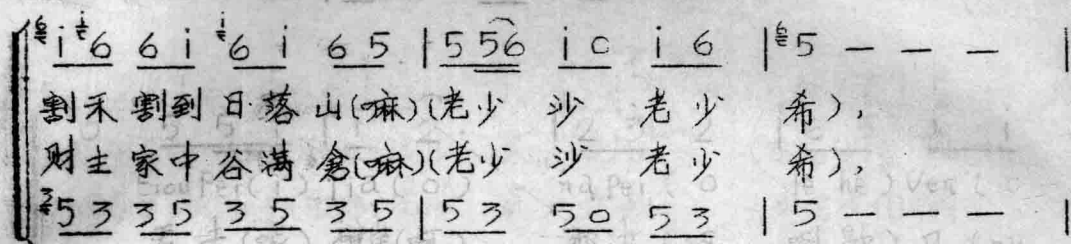 i 6 6 i 6 i 6 5 | 5 56 i 0 i 6 | 5 — — — |
割禾割到日落山(嘛)(老少沙老少希),
财主家中谷满仓(嘛)(老少沙老少希),
5 3 3 5 3 5 3 5 | 5 3 5 0 5 3 | 5 — — — |